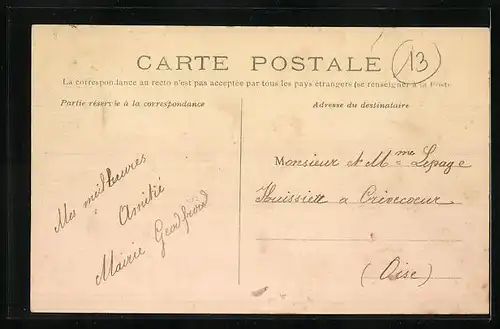 CARTE POSTALE
13
La correspondance au recto n'est pas acceptée par tous les pays étrangers (se renseigner à la Poste
Partie réservée à la correspondance
Adresse du destinataire
Monsieur et Mme Lepage
Huissier a Crèvecoeur
(Oise)
Mes meilleures
Amitié
Mairie Geodfroid